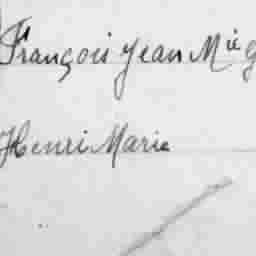 François Jean Mie G
Henri Marie